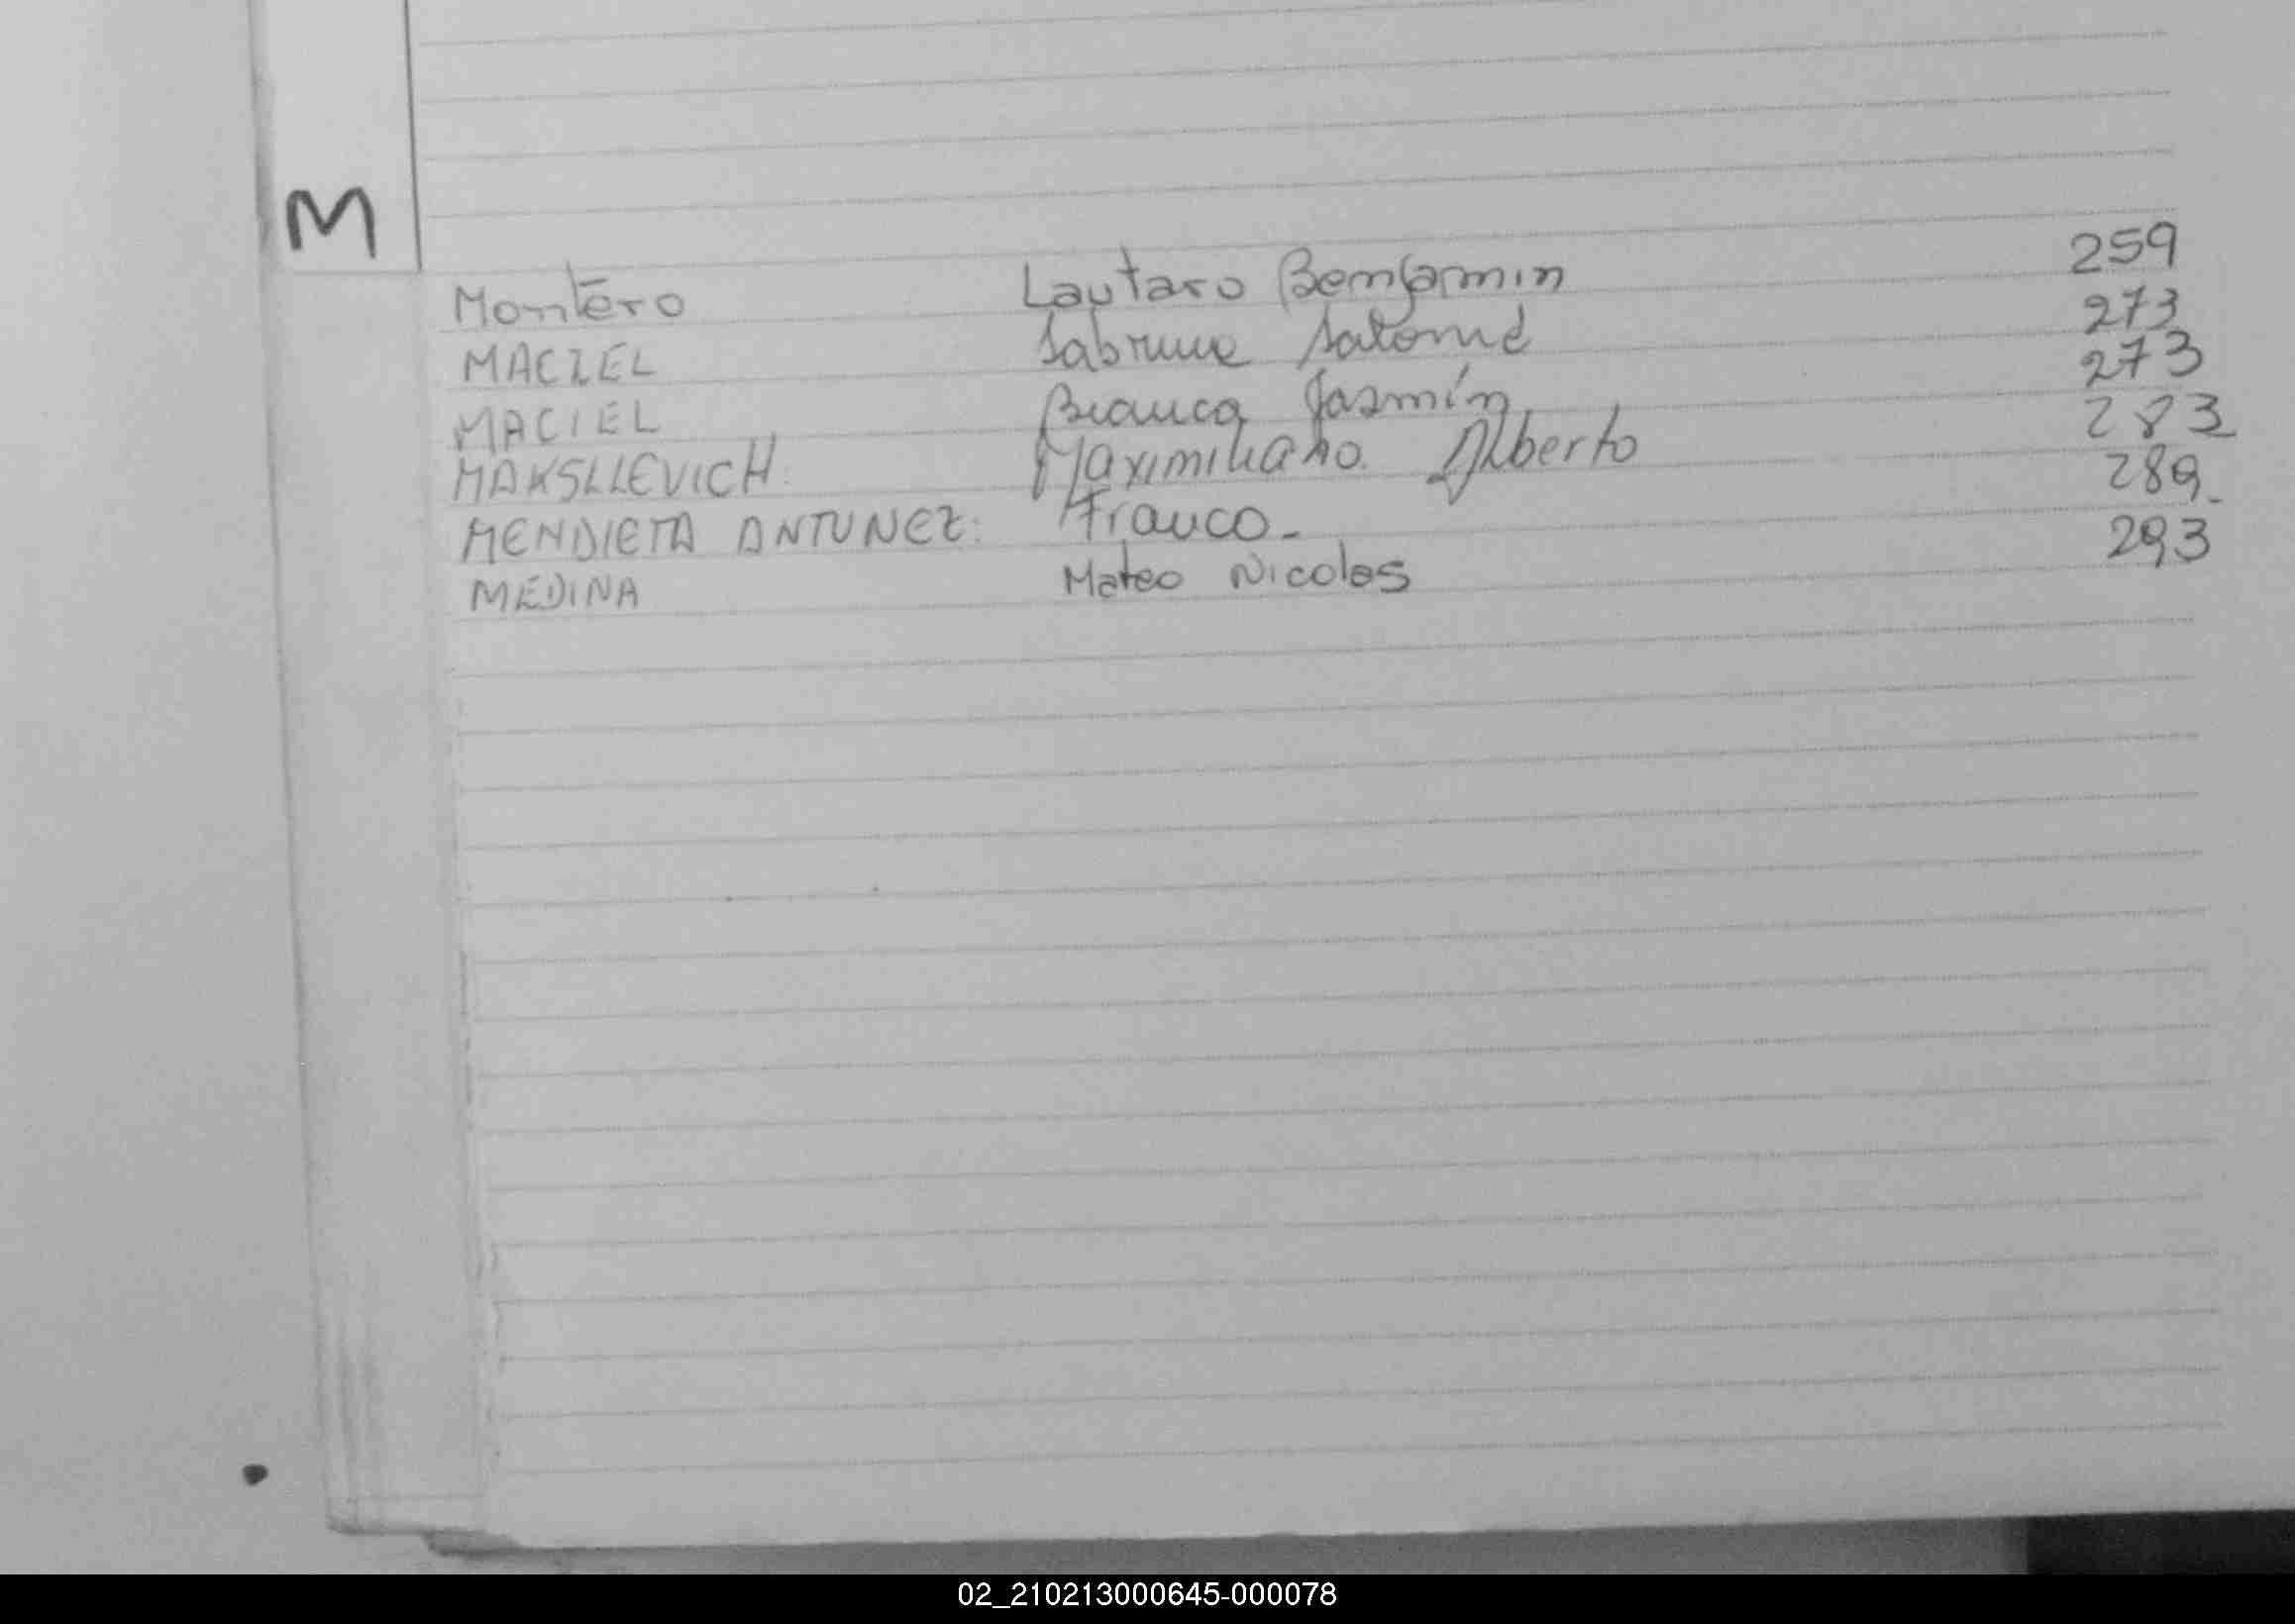 M
Montero Lautaro Benjamin 259
MACIEL Sabrina Salomé 273
MACIEL Bianca Jasmín 273
MAKSLLEVICH. Maximiliano. Alberto 283
MENDIETA ANTUNEZ: Franco- 289-
MEDINA Mateo Nicolas 293
02_210213000645-000078